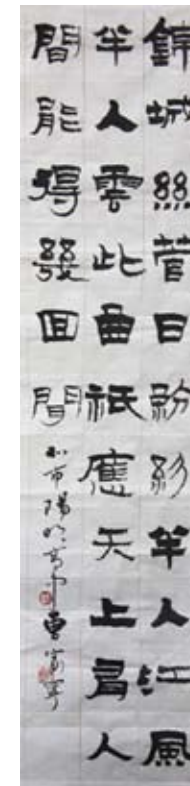 錦城絲管日紛紛半入江風
半入雲此曲祇應天上有人
間能得幾回聞
北市陽明高中 曹